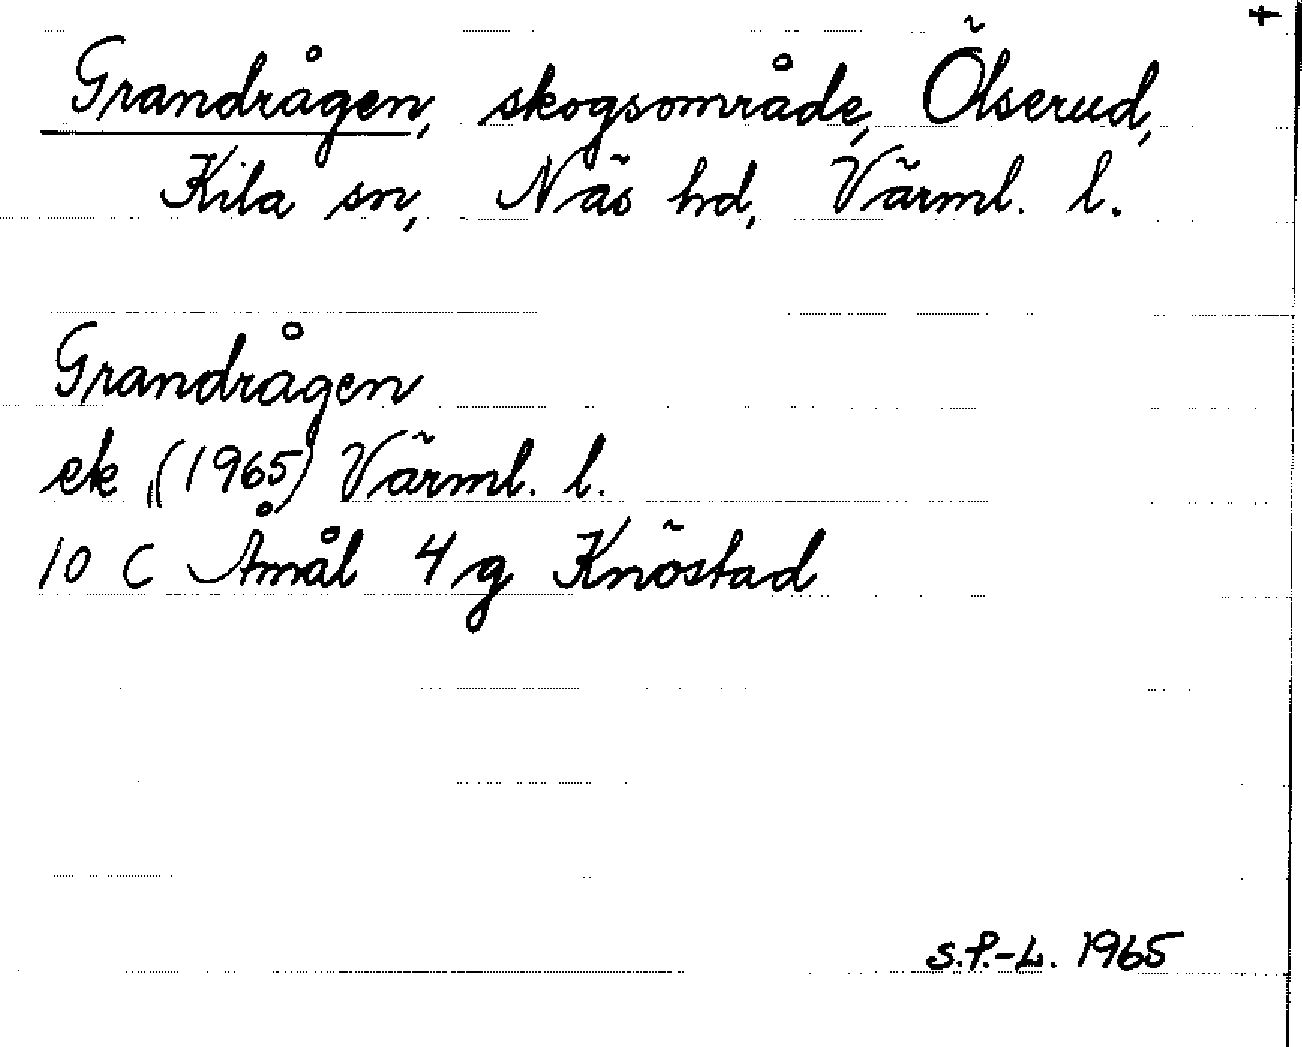 Grandrågen, skogsområde, Ölserud,
Kila sn, Näs hd, Värml. l.
Grandrågen
ek (1965) Värml. l.
10 C Åmål 4 g Knöstad
S.P.-L. 1965